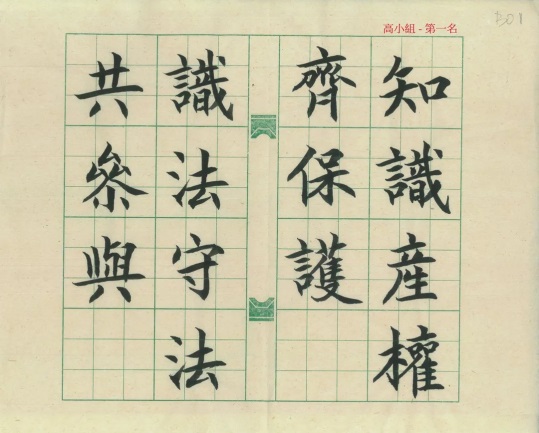 高小組 - 第一名
B01
知識産權
齊保護
識法守法
共參與